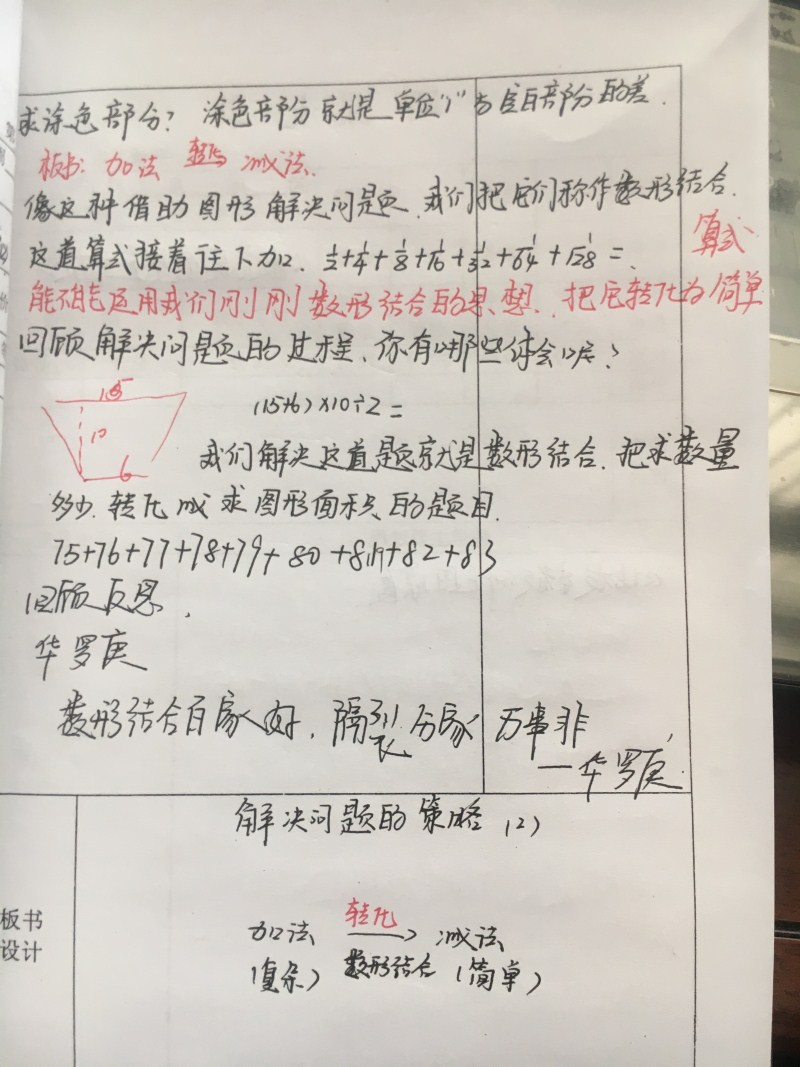 求涂色部分?涂色部分就是单位"1"与空白部分的差.
板书:加法 转化 减法.
像这种借助图形解决问题,我们把它们称作数形结合.
这道算式接着往下加. 1/2+1/4+1/8+1/16+1/32+1/64+1/128=.
算式
能不能运用我们刚刚数形结合的思想.把它转化为简单
回顾解决问题的过程、你有哪些体会呢?
15
10
6
(15+6)×10÷2=
我们解决这道题就是数形结合.把求数量
多少.转化成求图形面积的题目.
75+76+77+78+79+80+81+82+83
回顾反思.
华罗庚
数形结合百家好,隔裂分家万事非
—华罗庚
解决问题的策略(2)
板书
设计
加法 转化 减法
(复杂) 数形结合 (简单)